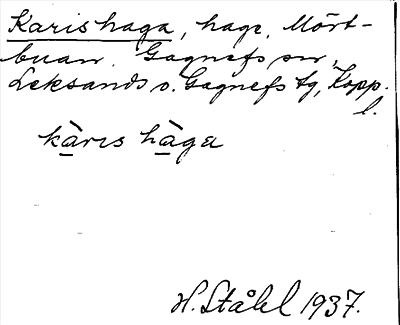 Karishaga, hage. Mört-
buan. Gagnefs sn,
Leksands o. Gagnefs tg, Kopp.
l.
kàrɪs hàga
H. Ståhl 1937.